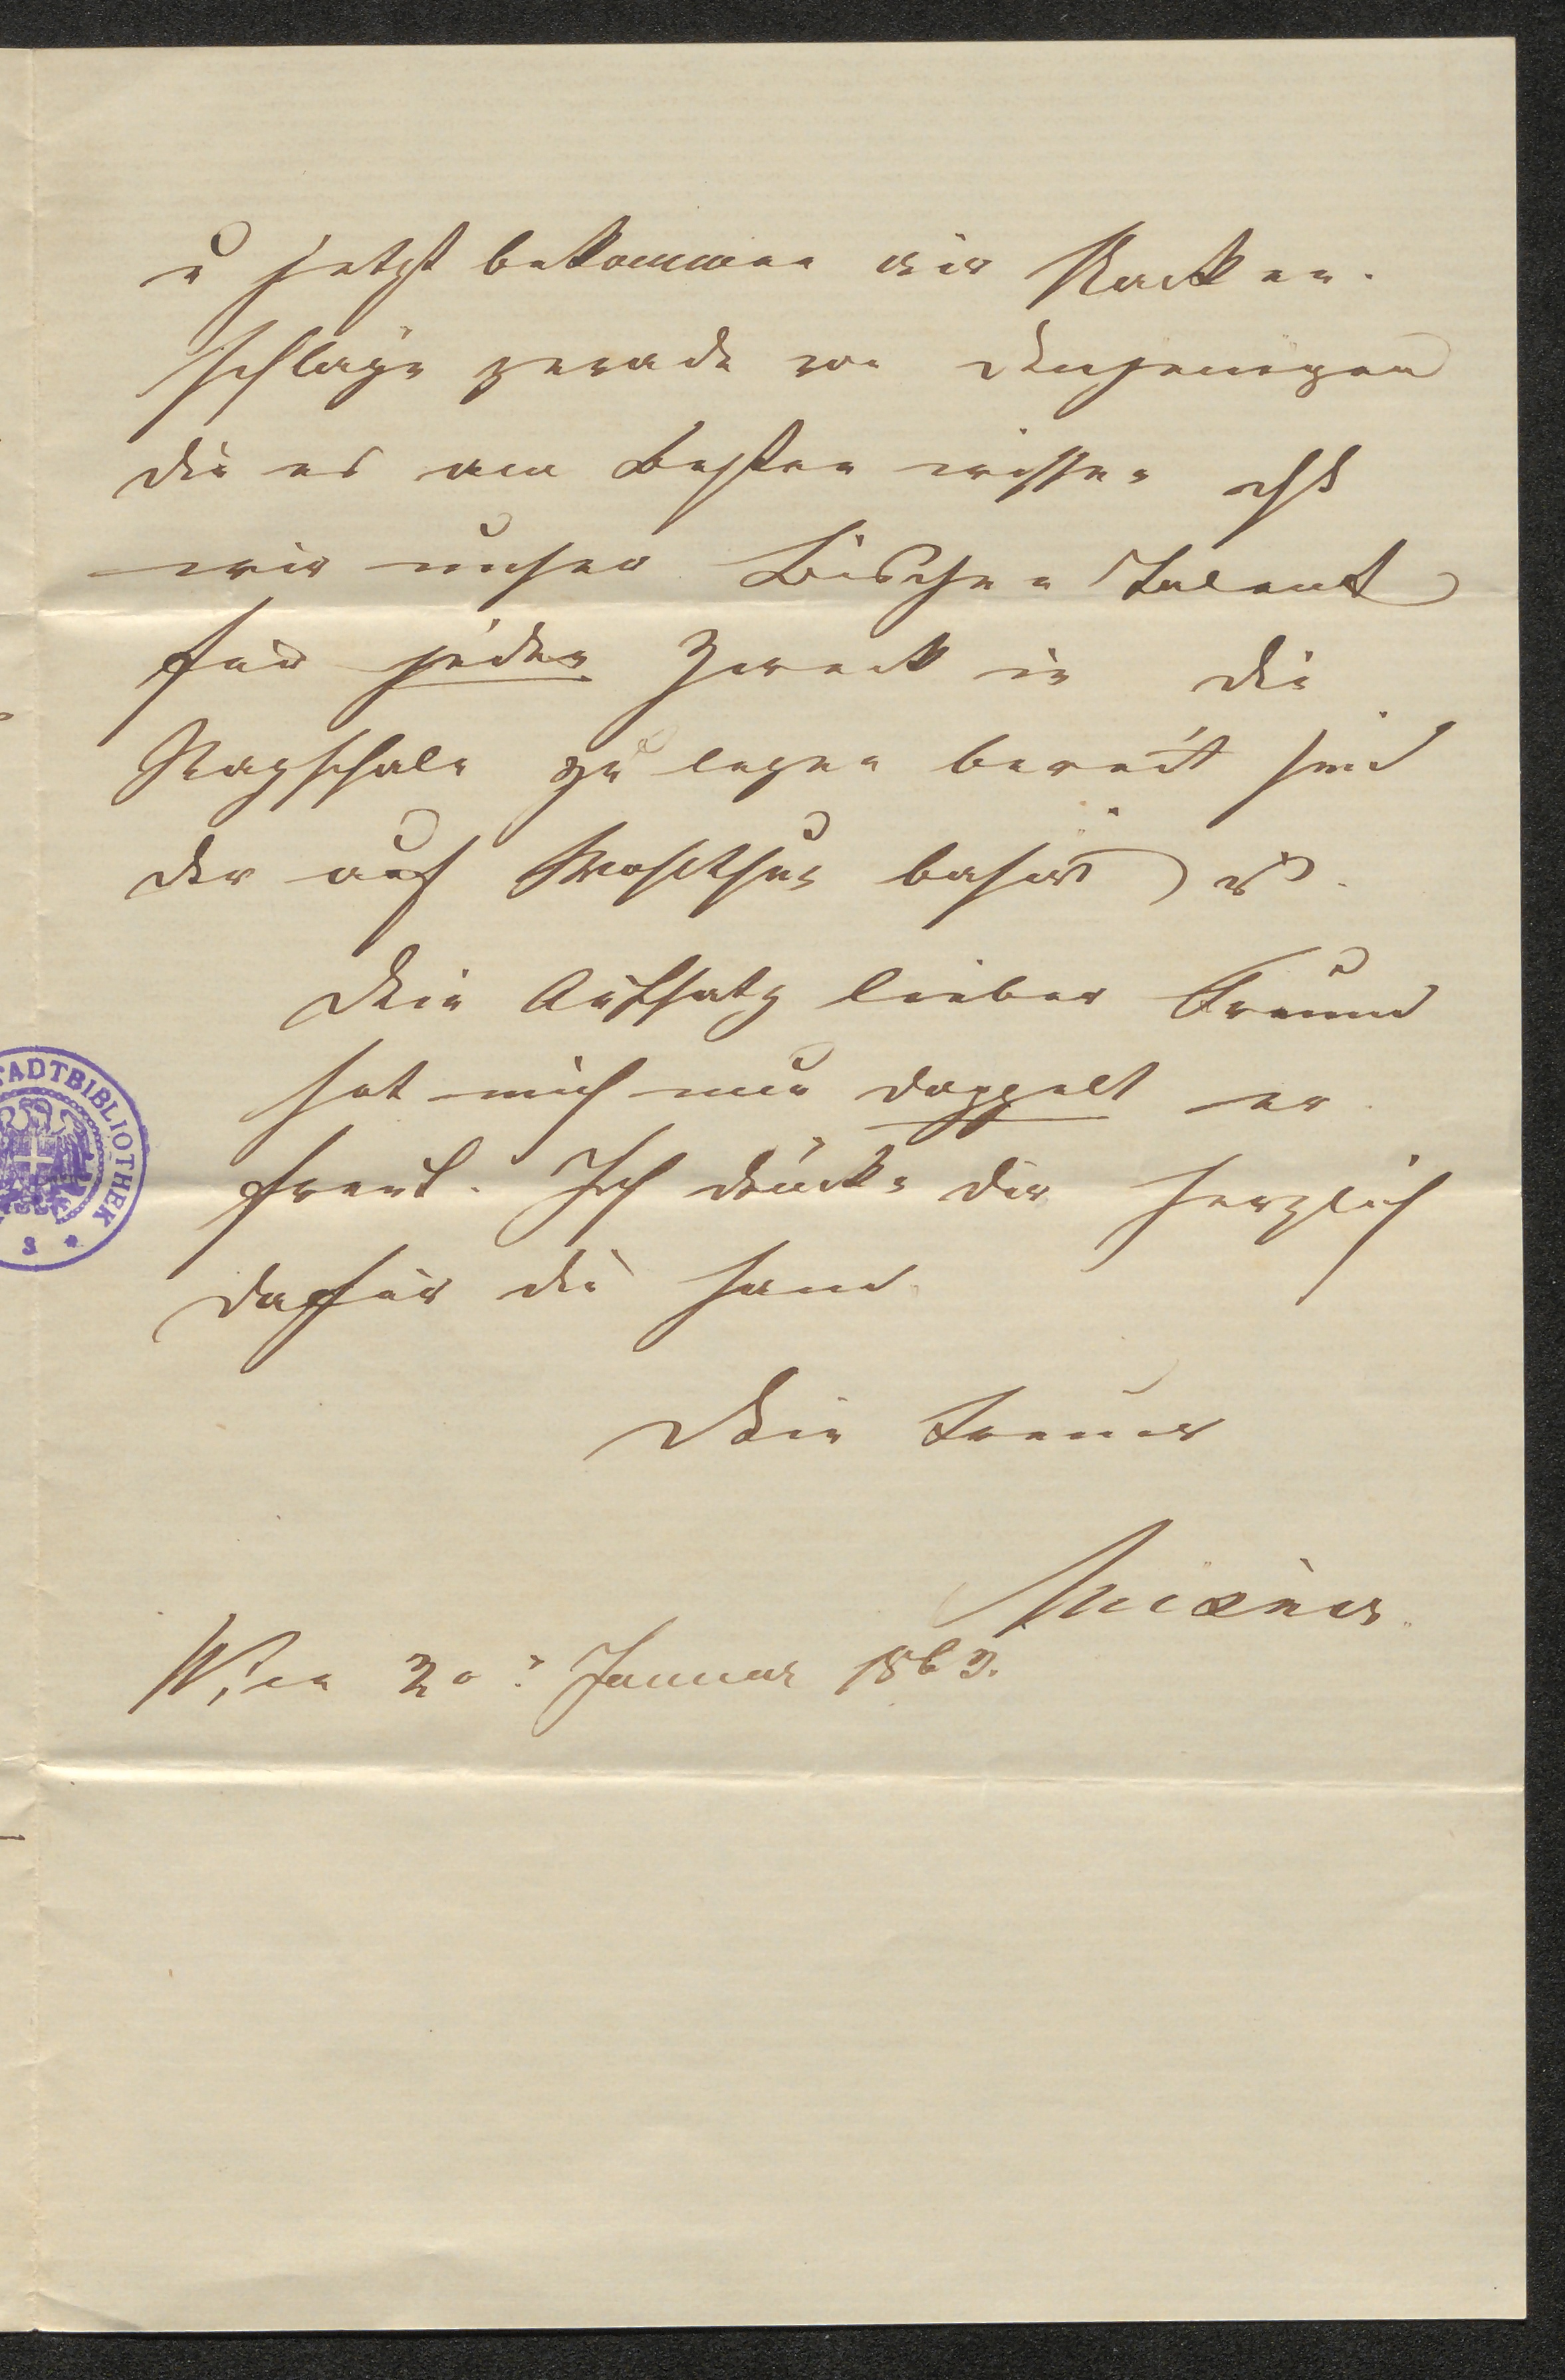 u jetzt bekommen wir Nacken-
schläge gerade von denjenigen
die es am Besten wissen daß
wir unser Bischen Talent
für jeden Zweck in die
Wagschale zu legen bereit sind
der auf Wohlthun basirt ist.
Dein Aufsatz lieber Freund
hat mich nun doppelt er-
freut. Ich drücke dir herzlich
dafür die Hand.
Dein treuer
Wien 20. Januar 1863.
STADTBIBLIOTHEK